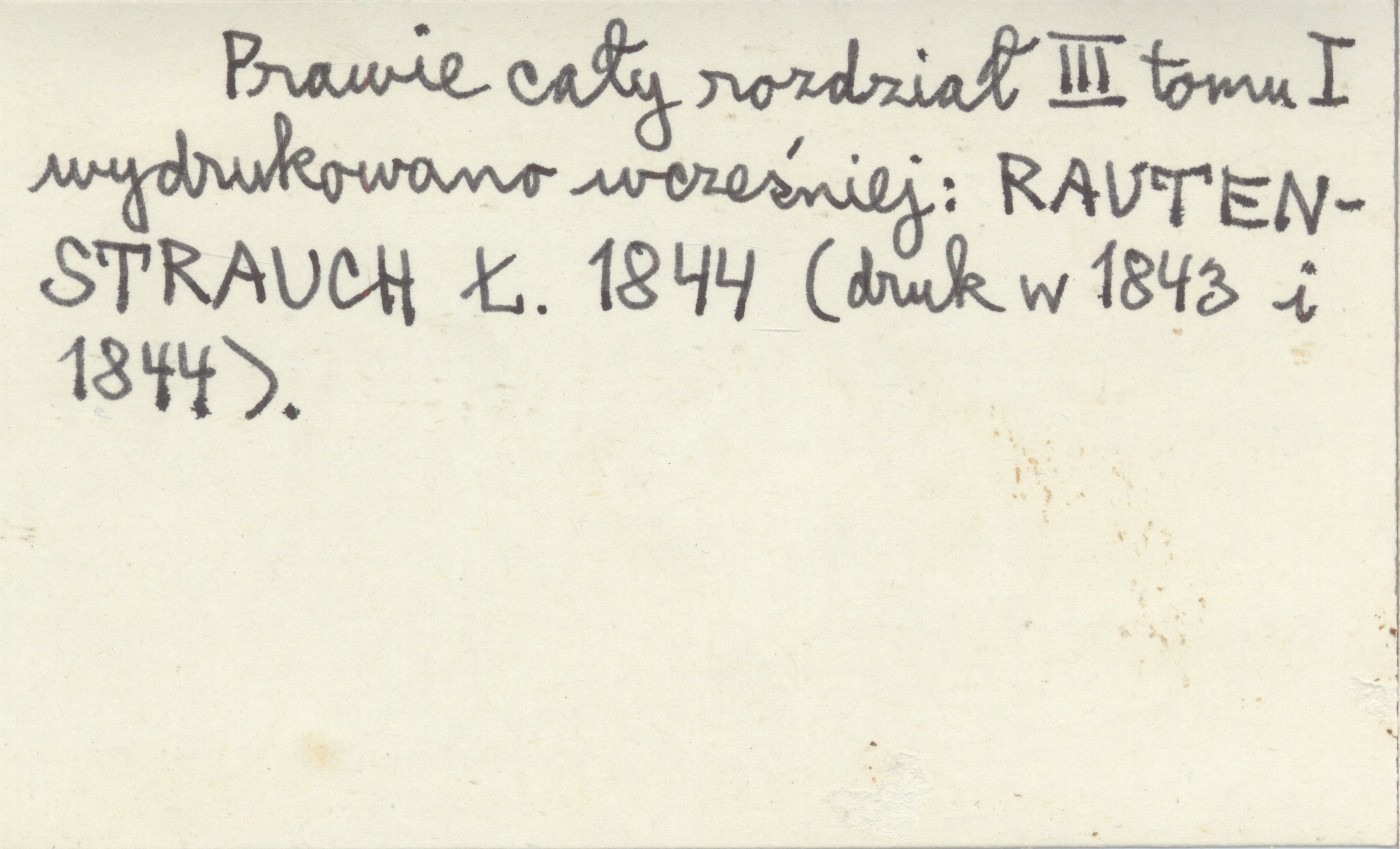 Prawie cały rozdział III tomu I
wydrukowano wcześniej: RAUTEN-
STRAUCH Ł. 1844 (druk w 1843 i
1844).